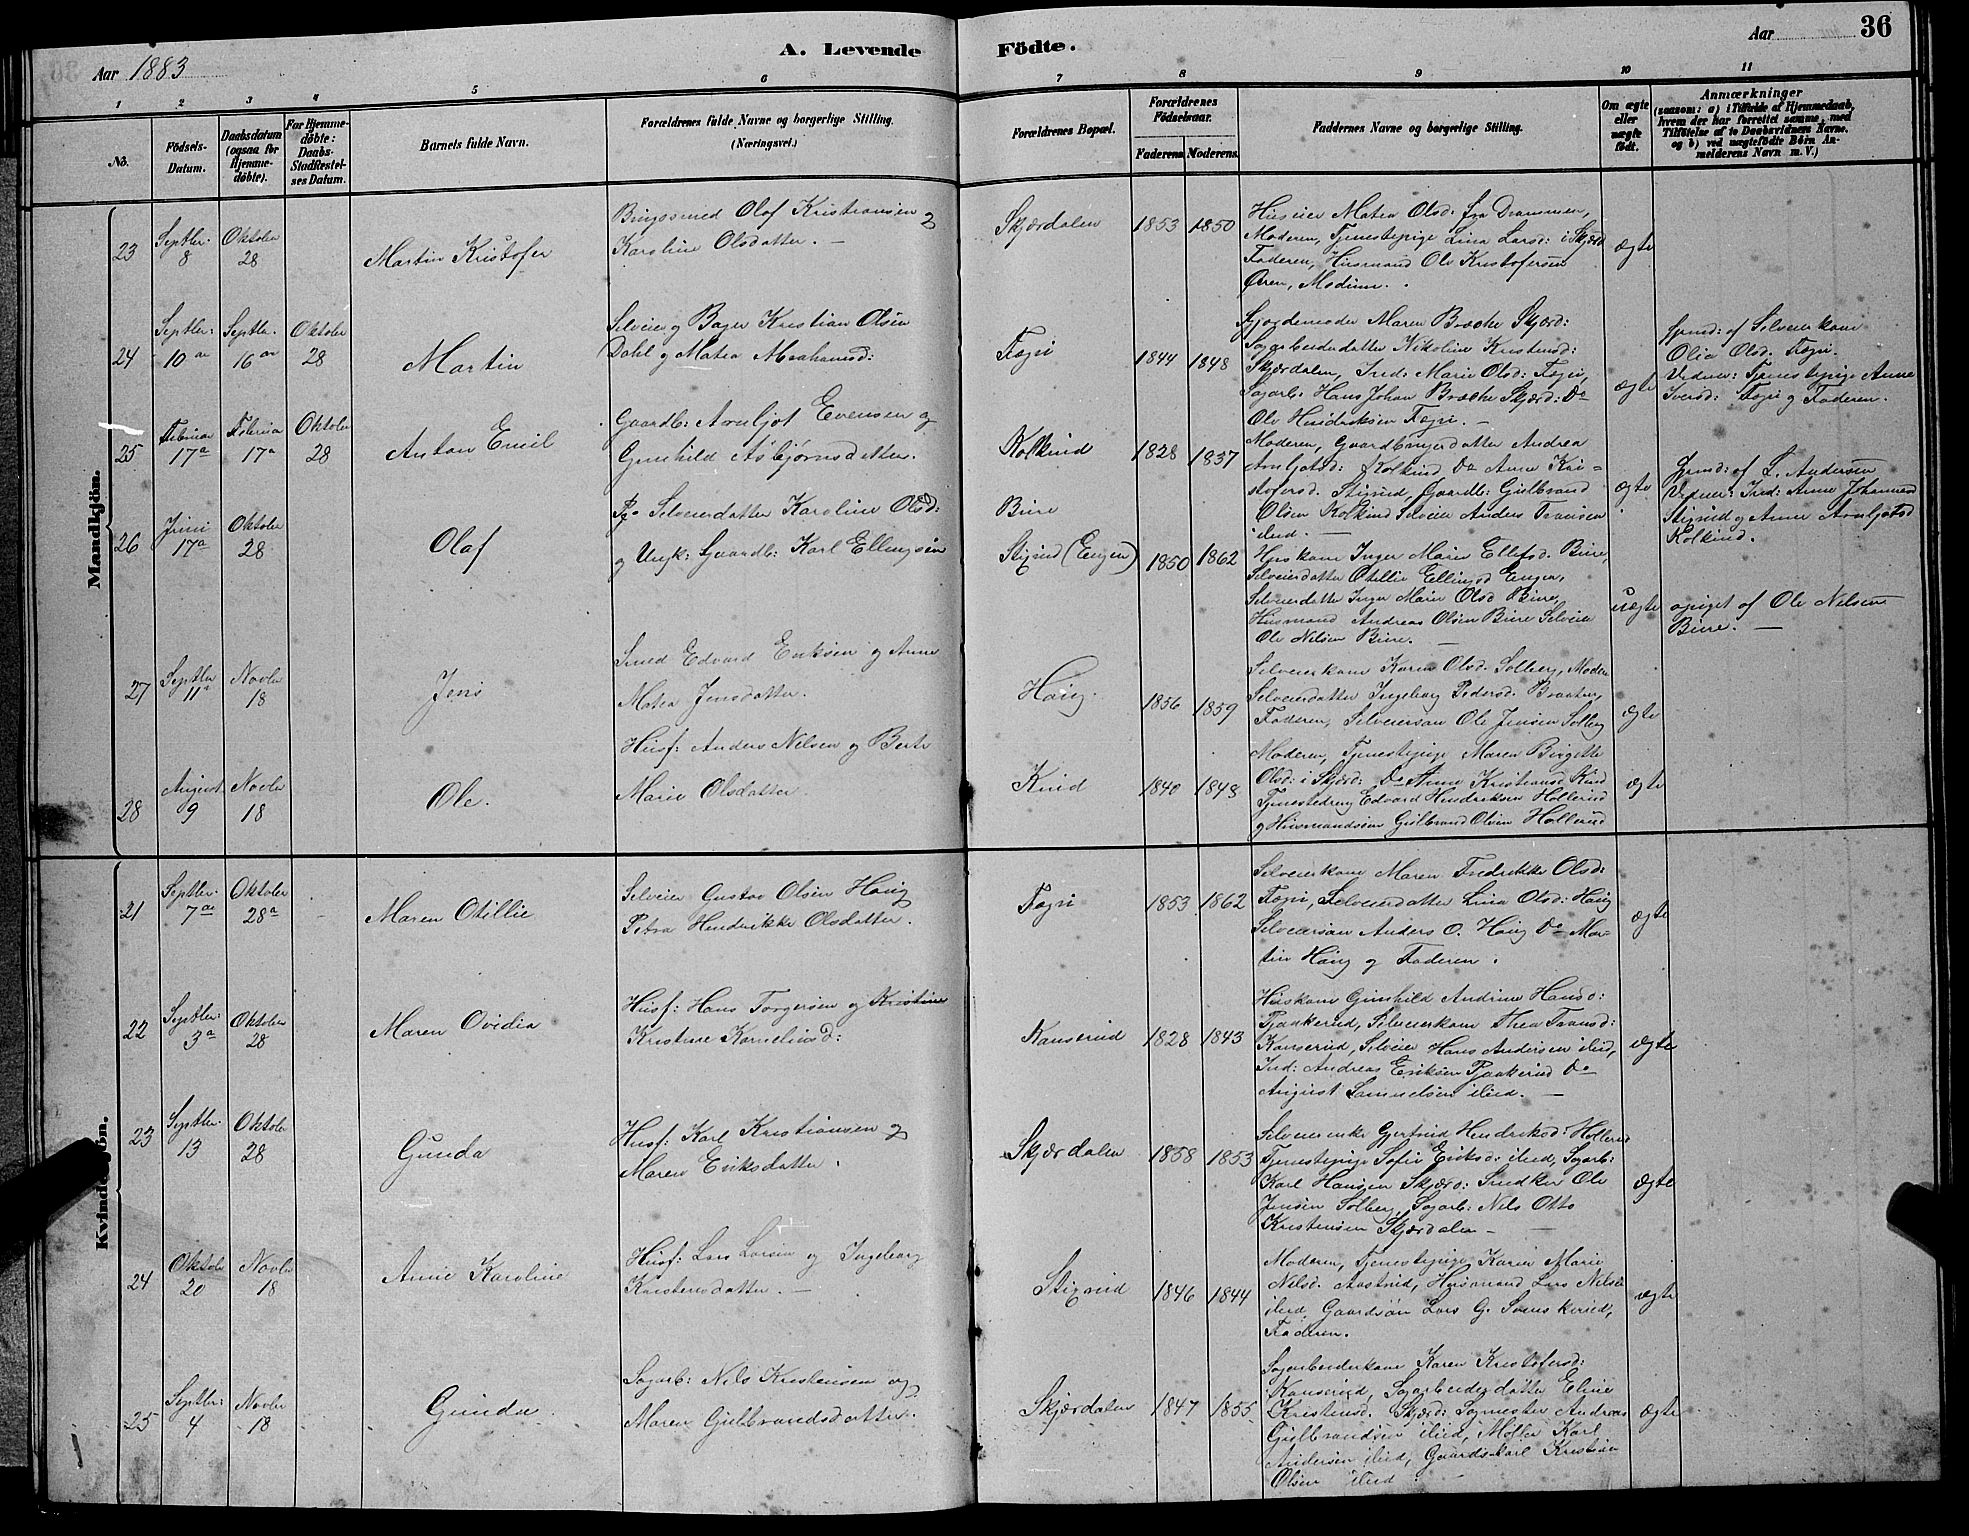 Aar 1883
A. Levende Födte.
Aar
36
1 2 3 4 5 6 7 8 9 10 11
No.
Födsels-
Datum.
Daabsdatum
(ogsaa for
Hjemme-
döbte).
For Hjemme-
döbte:
Daabs-
Stadfæstel-
ses Datum.
Barnets fulde Navn.
Forældrenes fulde Navne og borgerlige Stilling.
(Næringsvei.)
Forældrenes Bopæl.
Forældrenes
Födselsaar.
Faderens. Moderens.
Faddernes Navne og borgerlige Stilling.
Om ægte
eller
uægte
födt.
Anmærkninger
(saasom: a) i Tilfælde af Hjemmedaab,
hvem der har forrettet samme, med
Tilföielse af to Daabsvidners Navne.
og b) ved uægtefödte Börn An-
melderens Navn m. V.)
Mandkjön.
23
Septbr:
8
Oktober
28
Martin Kristofer
Olaf Kristiansen og
Karoline Olsdatter. –
Skjærdalen
1853
1850
Huseier Matea Olsd: fra Drammen,
Moderen, Tjenestepige Lina Larsd: i Skjærd
Faderen, Husmand Ole Kristofersen
Øren, Modum.
ægte
24
Septbr:
10
Septbr.
16
Oktober
28
Martin
Selveier og Bager Kristian Olsen
Dahl og Matea Abrahamsd:
Fegri
1844
1848
Gjordemoder Maren Bræche Skjærd:
Sagarbeiderdatter Nikoline Kristensd:
Skjærdalen, Ind: Marie Olsd: Fegri,
Sagarb. Hans Johan Bræche Skjærd: Do
Ole Hendriksen Fegri. –
ægte
Hmd: af Selveierkone
Olia Olsd. Fegri.
Vidner: Tjenestepige Anne
Iversd: Fegri og Faderen.
25
Februar
17a
Februar
17a
Oktober
28
Anton Emil
Gaardb: Arnljot Evensen og
Gunhild Asbjørnsdatter.
Kolkind
1828
1837
Moderen, Gaardbrugerdatter Andrea
Arnljotsd: Kolkind Do Anne Kri-
stofersd. Stigrud, Gaardb: Gulbrand
Olsen Kolkind Selveier Anders Fransen
ibid. –
ægte
Hmd: af L. Andersen
Vidner: Ind: Anne Johannesd
Stigrud og Anne Arnljotsd
Kolkind.
26
Juni
17a
Oktober
28
Olaf
Pg. Selveierdatter Karoline Olsd:
og Ungk: Gaardb: Karl Ellingsen
Bure
Stigrud (Engen)
1850
1862
Huskone Inger Marie Ellefsd. Bure,
Selveierdatter Otillie Ellingsd Engen,
Selveierdatter Inger Marie Olsd Bure,
Husmand Andreas Olsen Bure Selveier
Ole Nilsen Bure. –
uægte
opgivet af Ole Nelsen
Bure. –
27
Septbr
11a
Novbr
18
Jens
Smed Edvard Eriksen og Anne
Matea Jensdatter.
Haug.
1856
1859
Selveierkone Karen Olsd. Solberg, Moder
Selveierdatter Ingeborg Pedersd. Braaten,
Faderen, Selveiersøn Ole Jensen Solberg
ægte
28
August
9
Novbr
18
Ole.
Husf: Anders Nelsen og Berte
Marie Olsdatter.
Kind
1840
1843
Moderen, Tjenestepige Maren Birgitte
Olsd: i Skjærd: Do Anne Kristiansd Kind
Tjenestedreng Edvard Hendriksen Hollerud
og Husmandssøn Gulbrand Olsen Hollerud
ægte
Kvindekjön.
21
Septbr.
7
Oktober
28a
Maren Otillie
Selveier Gustav Olsen Haug
Petra Hendrikke Olsdatter.
Fegri
1853
1862
Selveierkone Maren Fredrikke Olsd:
Fegri, Selveierdatter Lina Olsd: Haug
Selveiersøn Anders O. Haug Do Mar-
tin Haug og Faderen.
ægte
22
Septbr:
3a
Oktober
28
Maren Ovidia
Husf: Hans Torgersen og Kristine
Kristine Korneliusd:
Kanserud
1828
1843
Huskone Gunhild Andrine Hansd:
Pjaakerud, Selveierkone Thea Fransd:
Kanserud, Selveier Hans Andersen ibid,
Ind: Andreas Eriksen Pjaakerud Do
August Samuelsen ibid. –
ægte
23
Septbr.
13
Oktober
28
Gunda
Husf: Karl Kristiansen og
Maren Eriksdatter.
Skjærdalen
1858
1853
Selveierenke Gjertrud Hendriksd: Hollerud
Tjenestepige Sofie Eriksd: ibid, Sagarb:
Karl Hansen Skjærd: Snedker Ole
Jensen Solberg, Sagarb: Nils Otto
Kristensen Skjærdalen –
ægte
24
Oktober
20
Novbr
18
Anne Karoline
Husf: Lars Larsen og Ingeborg
Kristensdatter. –
Stigrud
1846
1844
Moderen, Tjenestepige Karen Marie
Nilsd. Aastrud, Husmand Lars Nilsen
ibid, Gaardsøn Lars G. Svenskerud,
Faderen.
ægte
25
Septbr:
4
Novbr
18
Gunda
Sagarb: Nils Kristensen og
Maren Gulbrandsdatter.
Skjærdalen
1847
1855
Sagarbeiderkone Karen Kristofersd:
Kanserud, Sagarbeiderdatter Eline
Kristensd. Skjærd: Sagmester Andreas
Gulbrandsen ibid, Møller Karl
Andersen ibid, Gaardskarl Kristian
Olsen ibid
ægte